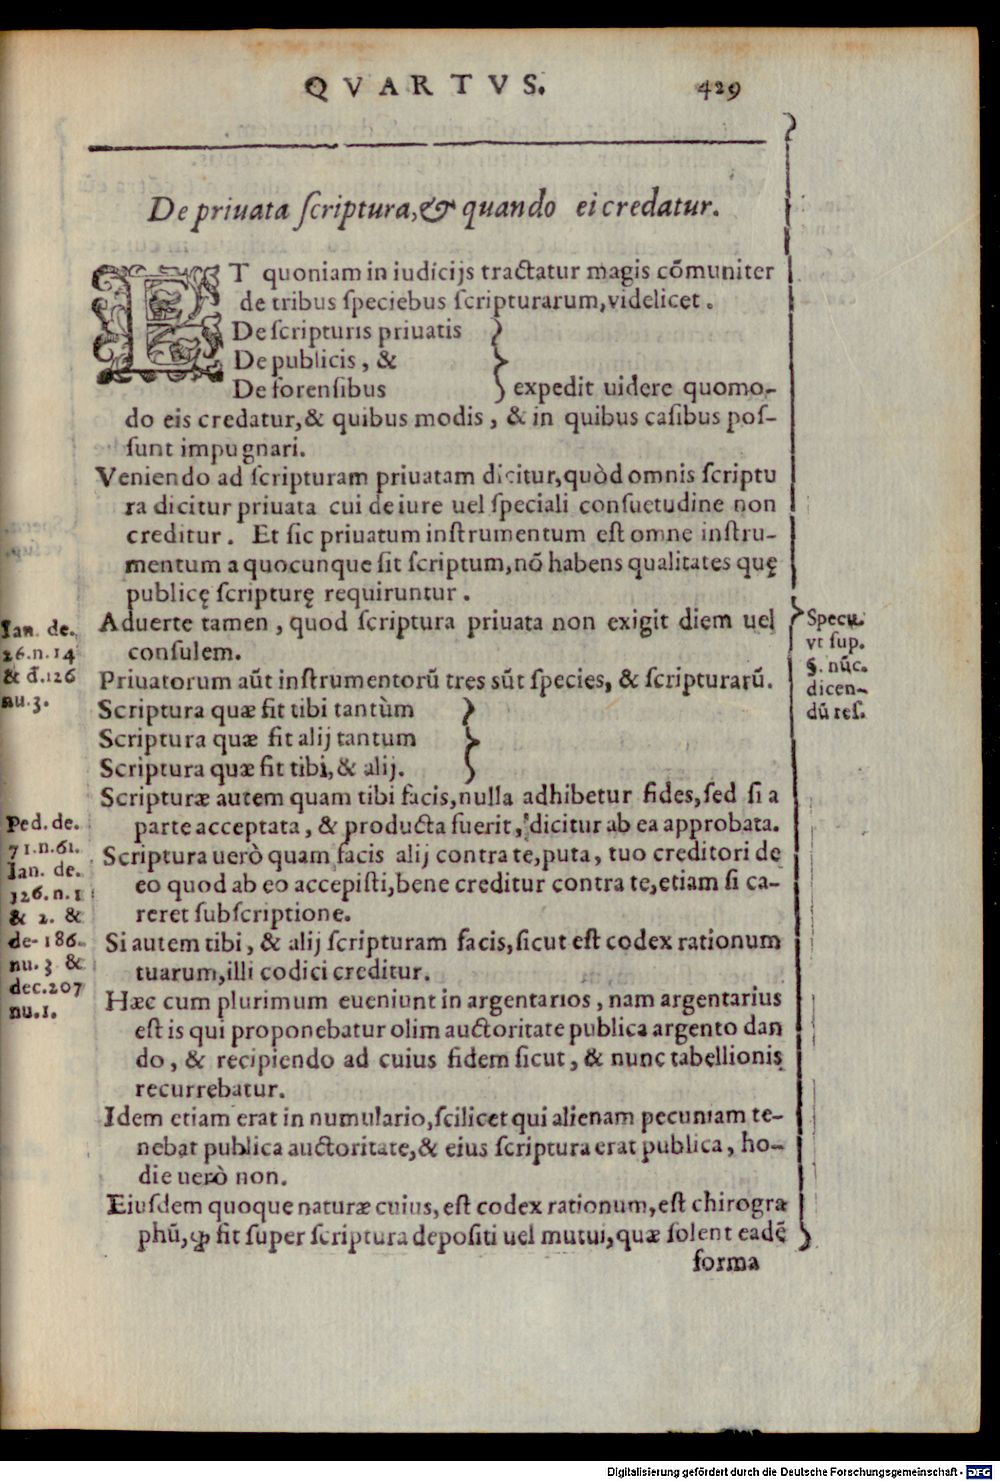 QVARTVS. 429
De priuata ſcriptura, & quando ei credatur.
ET quoniam in iudicijs tractatur magis cõmuniter
de tribus ſpeciebus ſcripturarum, videlicet.
De ſcripturis priuatis }
De publicis, & }
De forenſibus } expedit uidere quomo-
do eis credatur, & quibus modis, & in quibus caſibus poſ-
ſunt impugnari.
Veniendo ad ſcripturam priuatam dicitur, quòd omnis ſcriptu
ra dicitur priuata cui de iure uel ſpeciali conſuetudine non
creditur. Et ſic priuatum inſtrumentum eſt omne inſtru-
mentum a quocunque ſit ſcriptum, nõ habens qualitates quę
publicę ſcripturę requiruntur.
Aduerte tamen, quod ſcriptura priuata non exigit diem uel
conſulem.
Priuatorum aũt inſtrumentorũ tres sũt ſpecies, & ſcripturarũ.
Scriptura quæ fit tibi tantùm }
Scriptura quæ fit alij tantum }
Scriptura quæ fit tibi, & alij. }
Scripturæ autem quam tibi facis, nulla adhibetur fides, ſed ſi a
parte acceptata, & producta fuerit, dicitur ab ea approbata.
Scriptura uerò quam facis alij contra te, puta, tuo creditori de
eo quod ab eo accepiſti, bene creditur contra te, etiam ſi ca-
reret ſubſcriptione.
Si autem tibi, & alij ſcripturam facis, ſicut eſt codex rationum
tuarum, illi codici creditur.
Hæc cum plurimum eueniunt in argentarios, nam argentarius
eſt is qui proponebatur olim auctoritate publica argento dan
do, & recipiendo ad cuius fidem ſicut, & nunc tabellionis
recurrebatur.
Idem etiam erat in numulario, ſcilicet qui alienam pecuniam te-
nebat publica auctoritate, & eius ſcriptura erat publica, ho-
die uerò non.
Eiuſdem quoque naturæ cuius, eſt codex rationum, eſt chirogra
phũ, ꝙ fit ſuper ſcriptura depoſiti uel mutui, quæ ſolent eadẽ
forma
Ian. de.
26.n.14
& đ.126
nu.3.
Ped. de.
71.n.61.
Ian. de.
126.n.1
& 2. &
de-186.
nu.3 &
dec.207
nu.1.
Specu.
vt ſup.
§. nũc.
dicen-
dũ reſ.
Digitalisierung gefördert durch die Deutsche Forschungsgemeinschaft - DFG